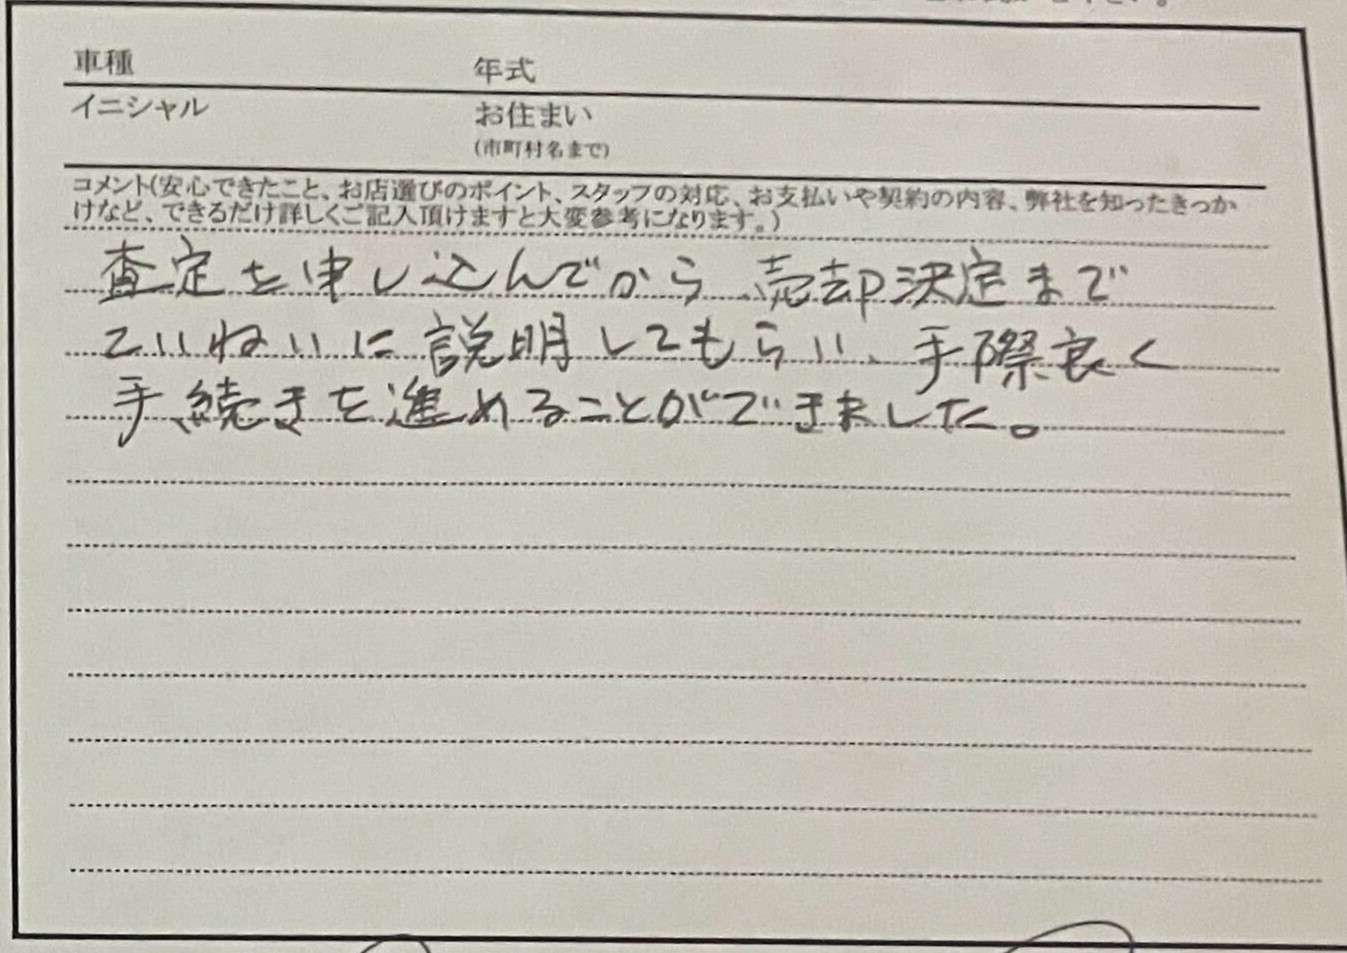 車種 年式
イニシャル お住まい
(市町村名まで)
コメント(安心できたこと、お店選びのポイント、スタッフの対応、お支払いや契約の内容、弊社を知ったきっか
けなど、できるだけ詳しくご記入頂けますと大変参考になります。)
査定を申し込んでから売却決定まで
ていねいに説明してもらい、手際良く
手続きを進めることができました。